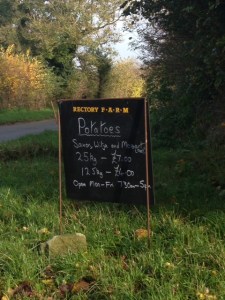 RECTORY F·A·R·M
Potatoes
and
25kg - £7.00
12.5kg - £4.00
Open Mon - Fri 7.30am - 5pm